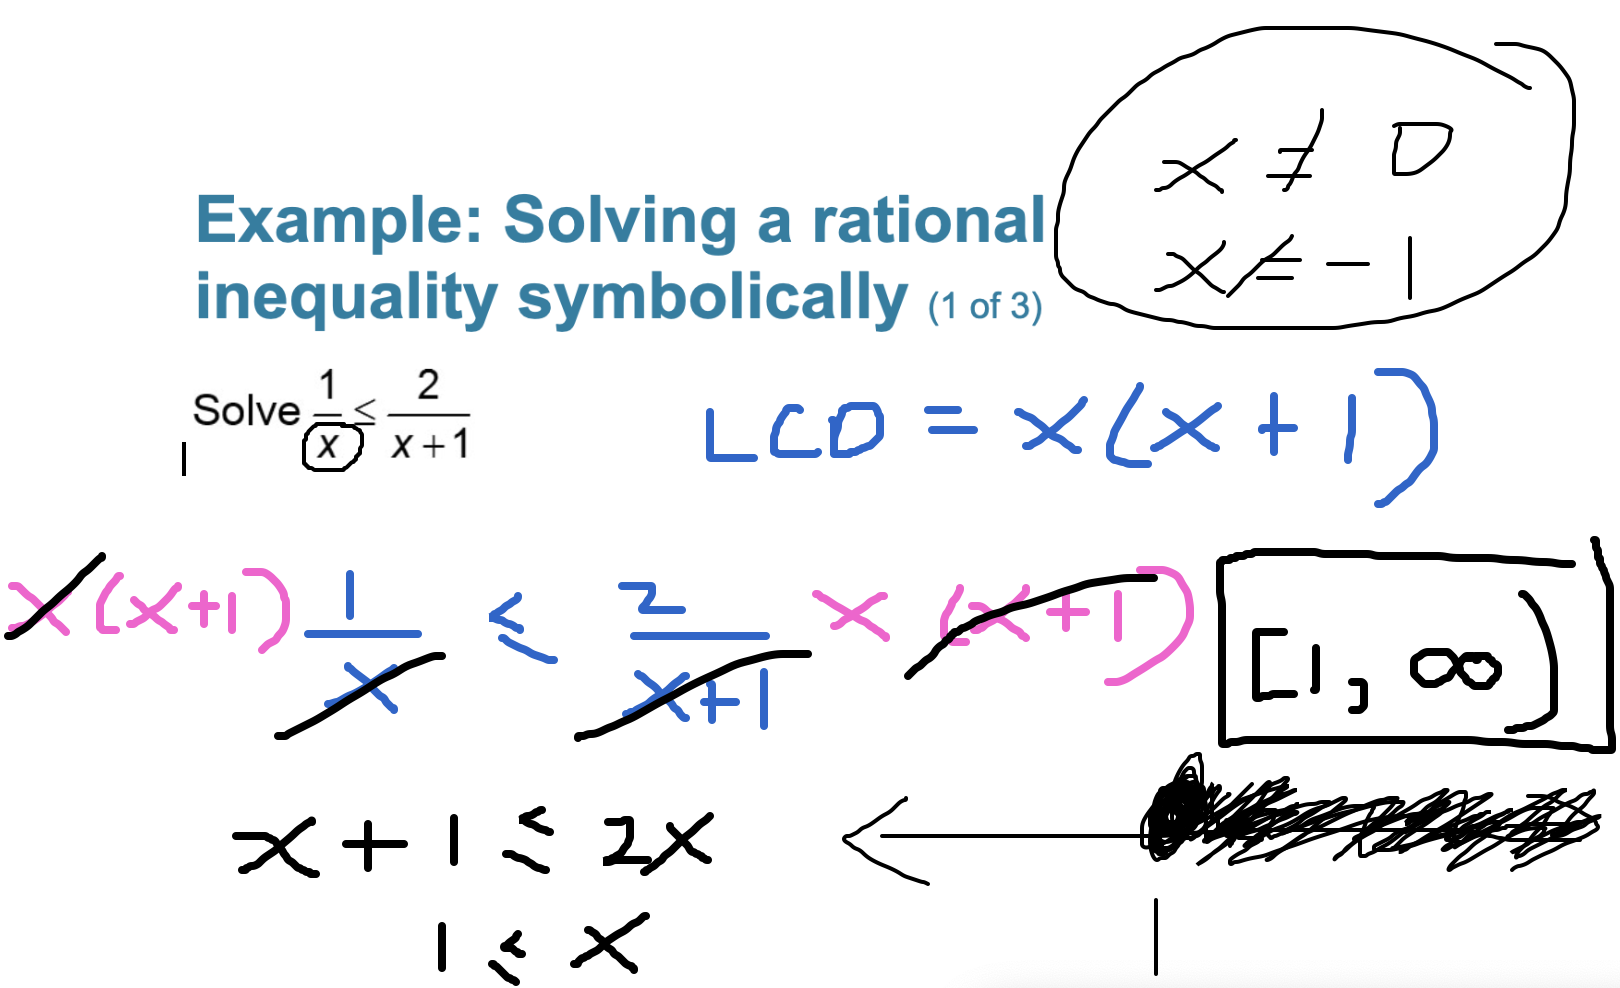 x ≠ 0
x ≠ -1
Example: Solving a rational
inequality symbolically (1 of 3)
Solve 1/x ≤ 2/(x+1)
LCD = x(x+1)
x(x+1) 1/x ≤ 2/(x+1) x(x+1)
[1, ∞)
x+1 ≤ 2x
1 ≤ x
1